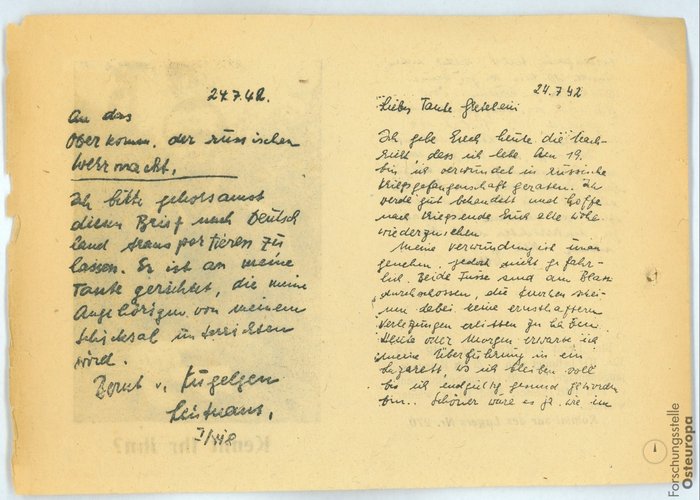 24.7.42.
An das
Oberkomm. der russischen
Wehrmacht.
Ich bitte gehorsamst
diesen Brief nach Deutsch
land transportieren zu
lassen. Er ist an meine
Tante gerichtet, die meine
Angehörigen von meinem
Schicksal unterrichten
wird.
Bernt v. Kügelgen
Leutnant.
24.7.42
Liebes Tante
Ich gebe Euch heute die Nach-
richt, dass ich lebe. Am 19.
bin ich verwundet in russische
Kriegsgefangenschaft geraten. Ich
werde gut behandelt und hoffe
nach Kriegsende Euch alle
wiederzusehen.
Meine Verwundung ist unan
genehm, jedoch nicht gefähr-
lich. Beide Füsse sind am
durchschossen, die Knochen schei-
nen dabei keine ernsthaften
Verletzungen erlitten zu haben.
Heute oder Morgen erwarte ich
meine Überführung in ein
Lazarett, wo ich bleiben soll
bis ich endgültig gesund geworden
bin. Schöner wäre es ja, wie im
Kennt Ihr ihn?
Forschungsstelle
Osteuropa